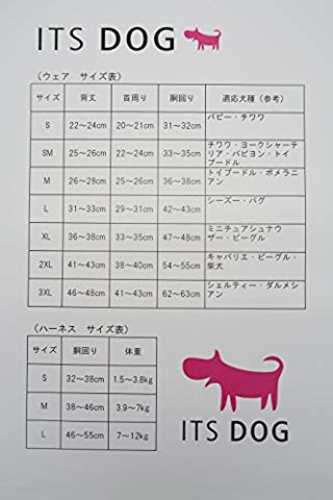 ITS DOG
(ウェア サイズ表)
サイズ 背丈 首周り 胴回り 適応犬種(参考)
S 22~24cm 20~21cm 31~32cm パピー・チワワ
SM 25~26cm 22~24cm 33~35cm チワワ・ヨークシャーテ
リア・パピヨン・トイ
プードル
M 26~28cm 25~26cm 36~38cm トイプードル・ポメラニ
アン
L 31~33cm 29~31cm 42~43cm シーズー・パグ
XL 36~38cm 33~35cm 47~48cm ミニチュアシュナウ
ザー・ビーグル
2XL 41~43cm 38~40cm 54~55cm キャバリエ・ビーグル・
柴犬
3XL 46~48cm 41~43cm 62~63cm シェルティー・ダルメシ
アン
(ハーネス サイズ表)
サイズ 胴回り 体重
S 32~38cm 1.5~3.8kg
M 38~46cm 3.9~7kg
L 46~55cm 7~12kg
ITS DOG